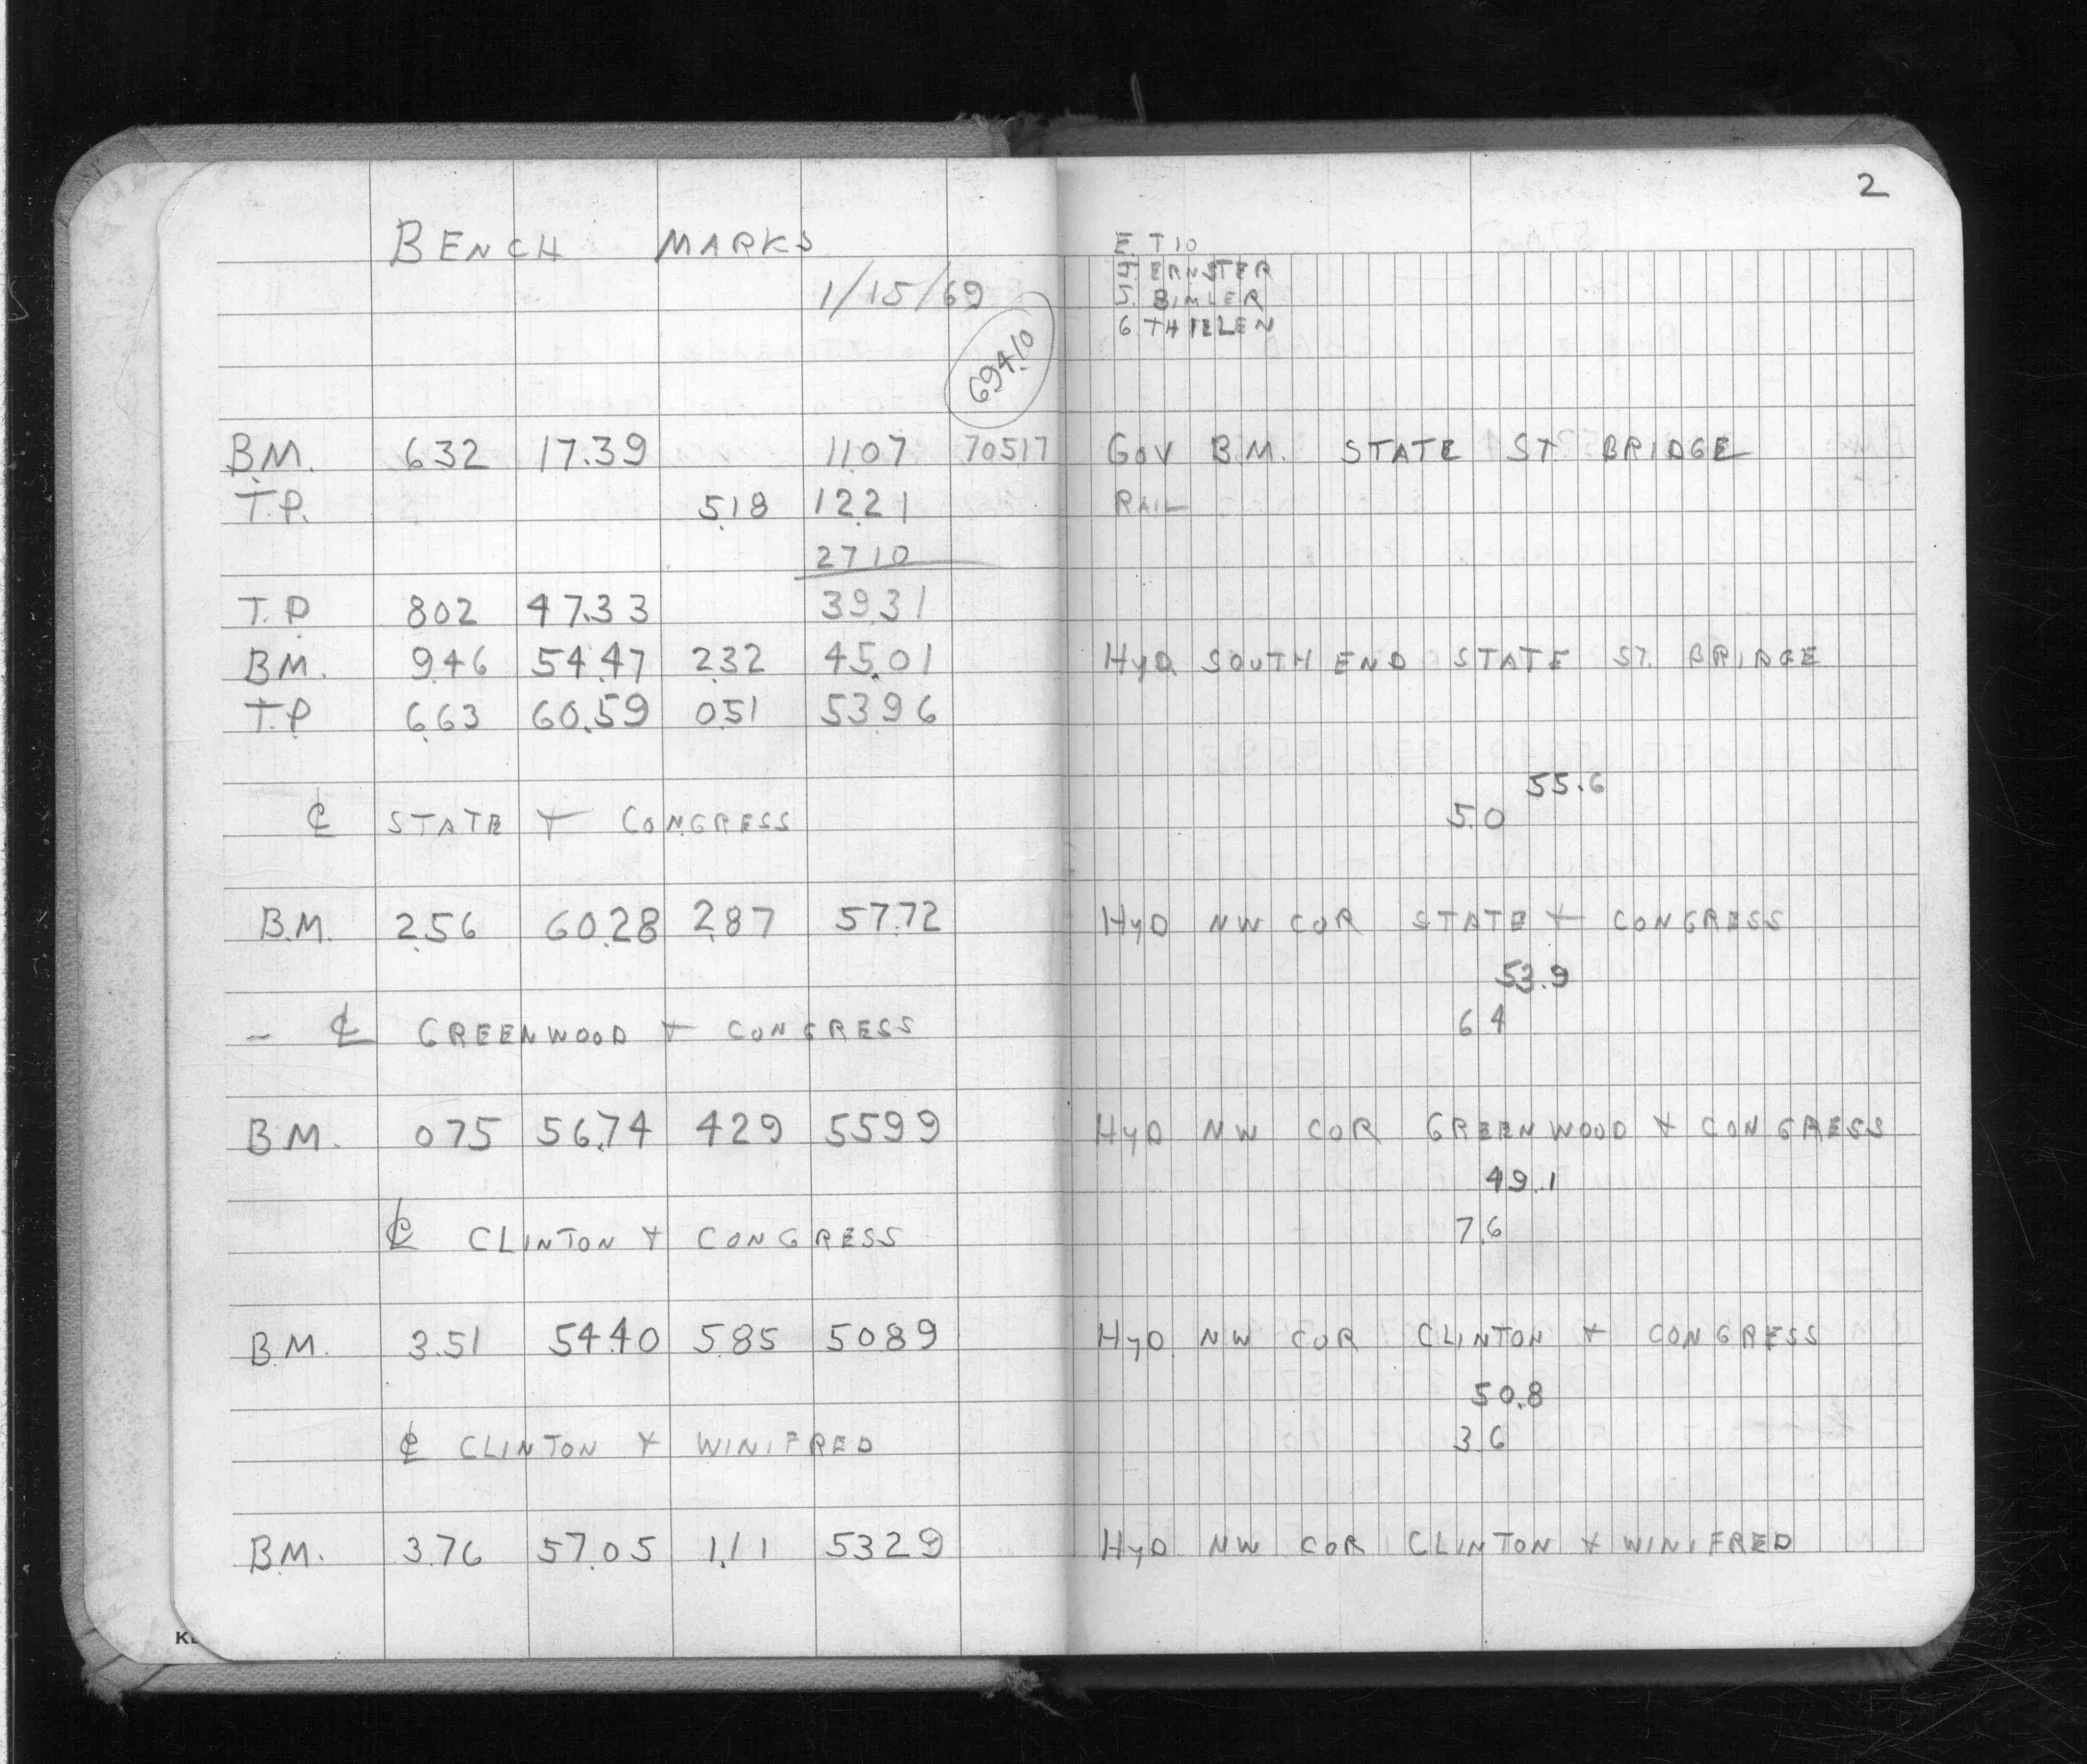 2
BENCH MARKS
1/15/69
694.10
E. TIO
J. ERNSTER
S. BIMLER
G. THILLEN
B.M. 632 17.39 11.07 70517 GOV B.M. STATE ST. BRIDGE
T.P. 5.18 12.21 RAIL
27 10
T.P 802 47.33 39.31
B.M. 9.46 54.47 2.32 45.01 HYD. SOUTH END STATE ST. BRIDGE
T.P 6.63 60.59 0.51 53.96
55.6
℄ STATE + CONGRESS 5.0
B.M. 2.56 60.28 2.87 57.72 HYD NW COR STATE + CONGRESS
53.9
- ℄ GREENWOOD + CONGRESS 6 4
B.M. 075 56.74 429 5599 HYD NW COR GREENWOOD + CONGRESS
49.1
℄ CLINTON + CONGRESS 7.6
B.M. 3.51 54.40 5.85 50 89 HYD. NW COR CLINTON + CONGRESS
50.8
℄ CLINTON + WINIFRED 3.6
B.M. 3.76 57.05 1.11 5329 HYD NW COR CLINTON + WINIFRED